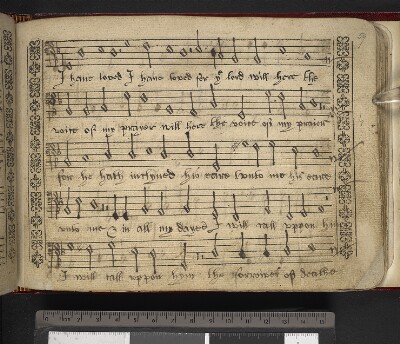 I have loved I have loved for yͤ lord will here the
voice off my prayer will here the voice off my praier
for he hath inclyned his eare unto me his eare
unto me & in all my dayes I will call uppon him
I will call uppon hym the sorrowes off deathe